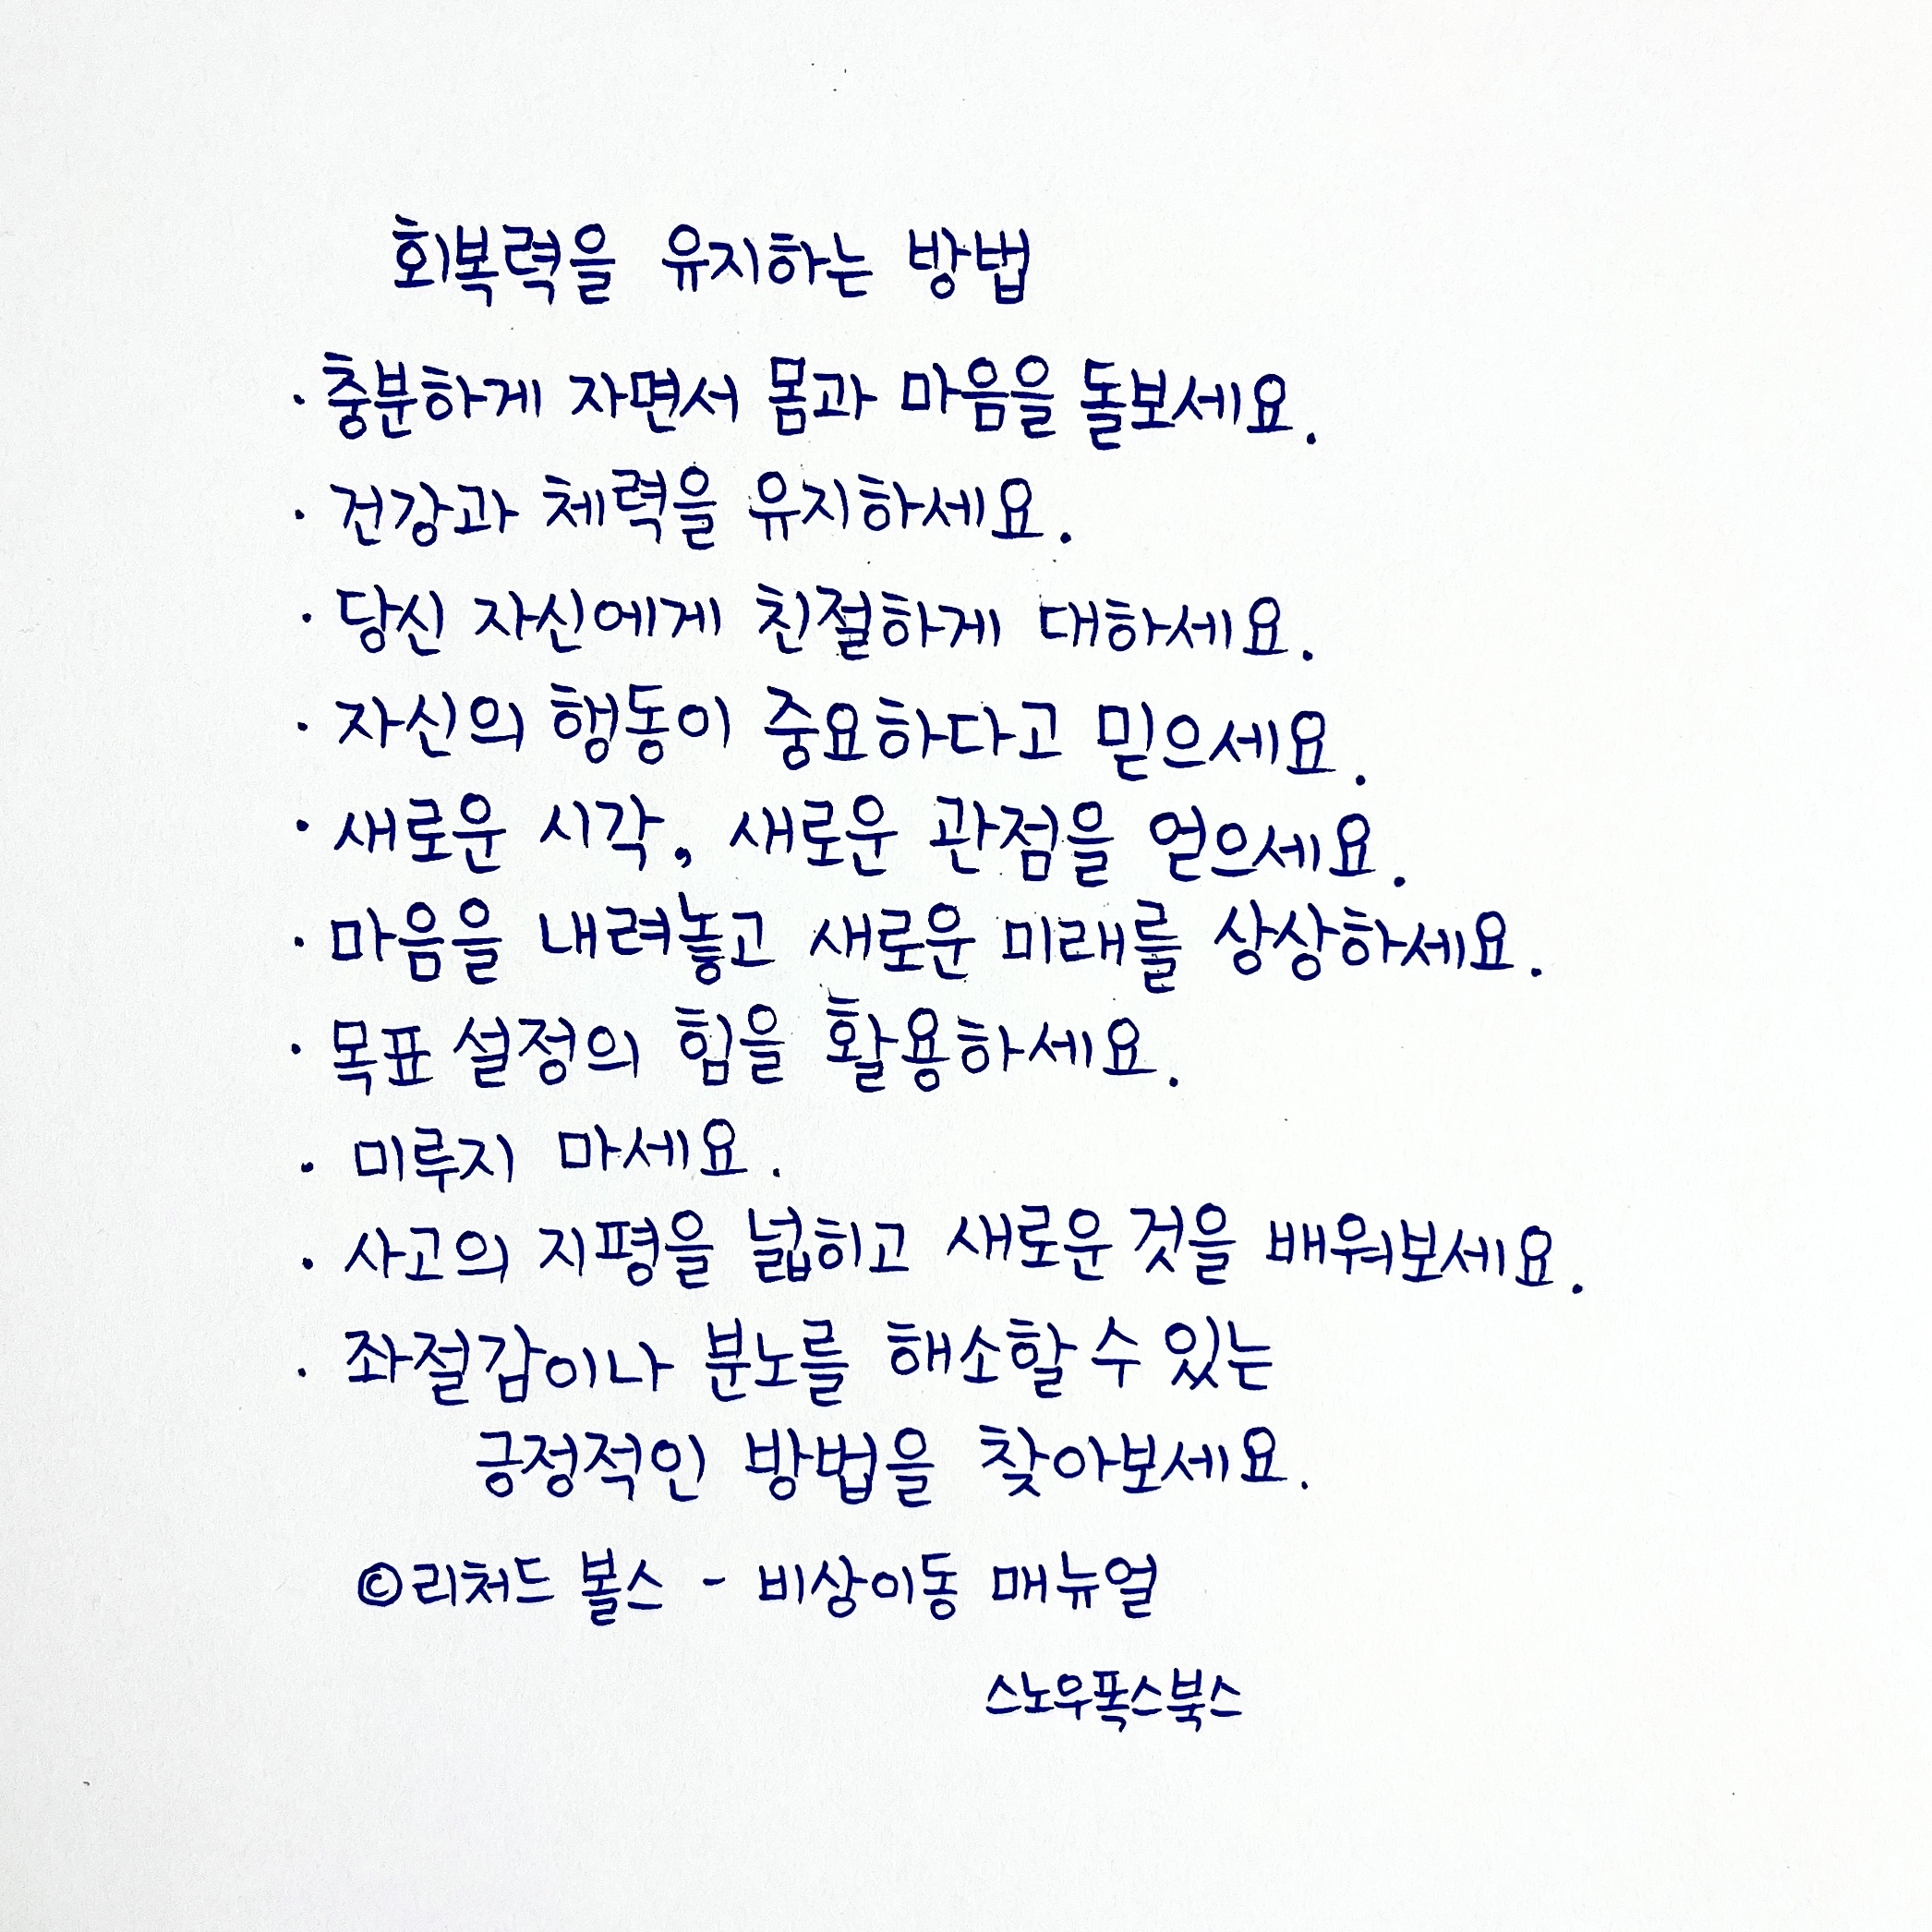 회복력을 유지하는 방법
· 충분하게 자면서 몸과 마음을 돌보세요.
· 건강과 체력을 유지하세요.
· 당신 자신에게 친절하게 대하세요.
· 자신의 행동이 중요하다고 믿으세요.
· 새로운 시각, 새로운 관점을 얻으세요.
· 마음을 내려놓고 새로운 미래를 상상하세요.
· 목표 설정의 힘을 활용하세요.
· 미루지 마세요.
· 사고의 지평을 넓히고 새로운 것을 배워보세요.
· 좌절감이나 분노를 해소할 수 있는
긍정적인 방법을 찾아보세요.
©리처드 볼스 - 비상이동 매뉴얼
스노우폭스북스